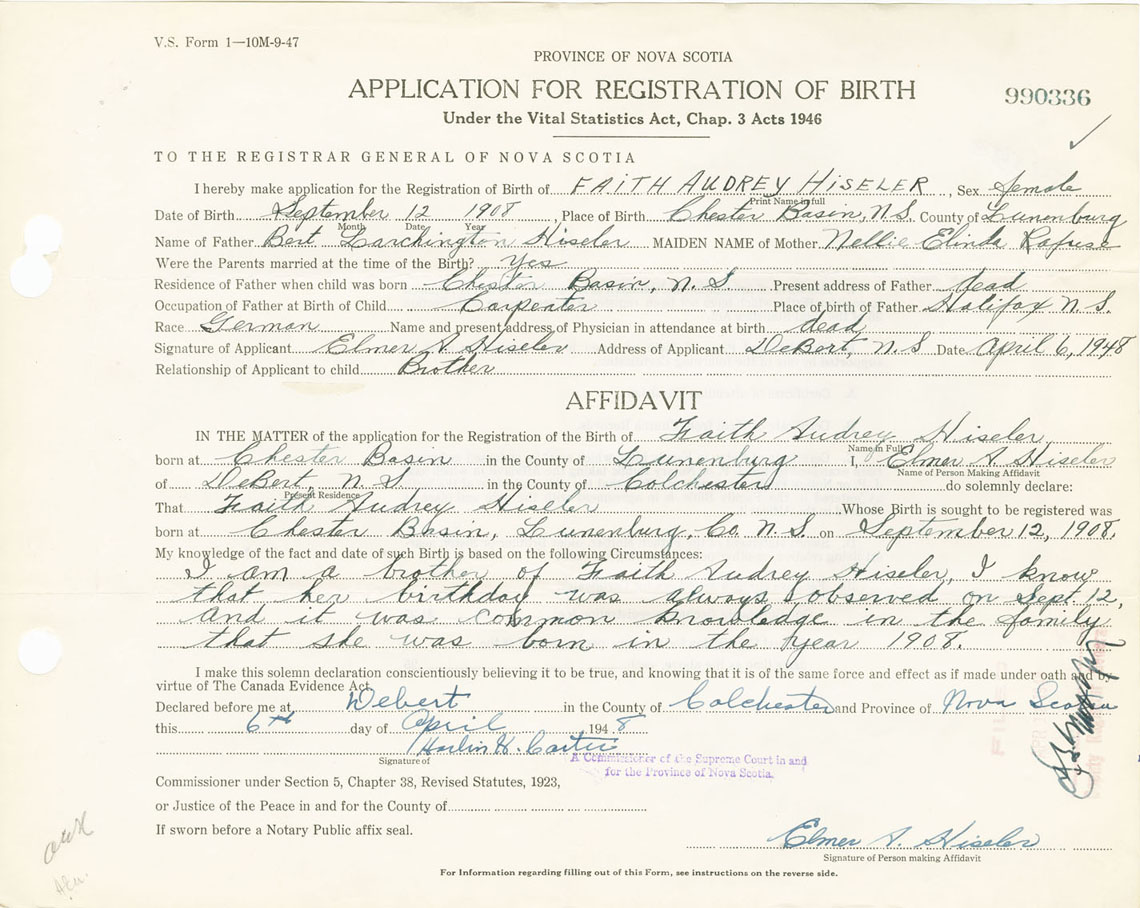 V.S. Form 1—10M-9-47
PROVINCE OF NOVA SCOTIA
APPLICATION FOR REGISTRATION OF BIRTH
990336
Under the Vital Statistics Act, Chap. 3 Acts 1946
TO THE REGISTRAR GENERAL OF NOVA SCOTIA
I hereby make application for the Registration of Birth of FAITH AUDREY HISELER, Sex female
Print Name in full
Date of Birth September 12 1908, Place of Birth Chester Basin, N.S. County of Lunenburg
Month Date Year
Name of Father Bert Larchington Hiseler MAIDEN NAME of Mother Nellie Elinda Rafuse
Were the Parents married at the time of the Birth? Yes
Residence of Father when child was born Chester Basin, N. S. Present address of Father dead
Occupation of Father at Birth of Child Carpenter Place of birth of Father Halifax N.S.
Race German Name and present address of Physician in attendance at birth dead
Signature of Applicant Elmer A Hiseler Address of Applicant DeBert, N.S Date April 6, 1948
Relationship of Applicant to child Brother
AFFIDAVIT
IN THE MATTER of the application for the Registration of the Birth of Faith Audrey Hiseler,
Name in Full
born at Chester Basin in the County of Lunenburg I, Elmer A Hiseler
Name of Person Making Affidavit
of DeBert, N. S in the County of Colchester do solemnly declare:
Present Residence
That Faith Audrey Hiseler Whose Birth is sought to be registered was
born at Chester Basin, Lunenburg, Co. N. S. on September 12, 1908.
My knowledge of the fact and date of such Birth is based on the following Circumstances:
I am a brother of Faith Audrey Hiseler, I know
that her birthday was always observed on Sept. 12,
and it was common knowledge in the family
that she was born in the year 1908.
I make this solemn declaration conscientiously believing it to be true, and knowing that it is of the same force and effect as if made under oath and by
virtue of The Canada Evidence Act.
Declared before me at Debert in the County of Colchester and Province of Nova Scotia
this 6th day of April 1948
Harlin H. Carter
Signature of
A Commissioner of the Supreme Court in and
for the Province of Nova Scotia.
Commissioner under Section 5, Chapter 38, Revised Statutes, 1923,
or Justice of the Peace in and for the County of
If sworn before a Notary Public affix seal.
Elmer A. Hiseler
Signature of Person making Affidavit
For Information regarding filling out of this Form, see instructions on the reverse side.